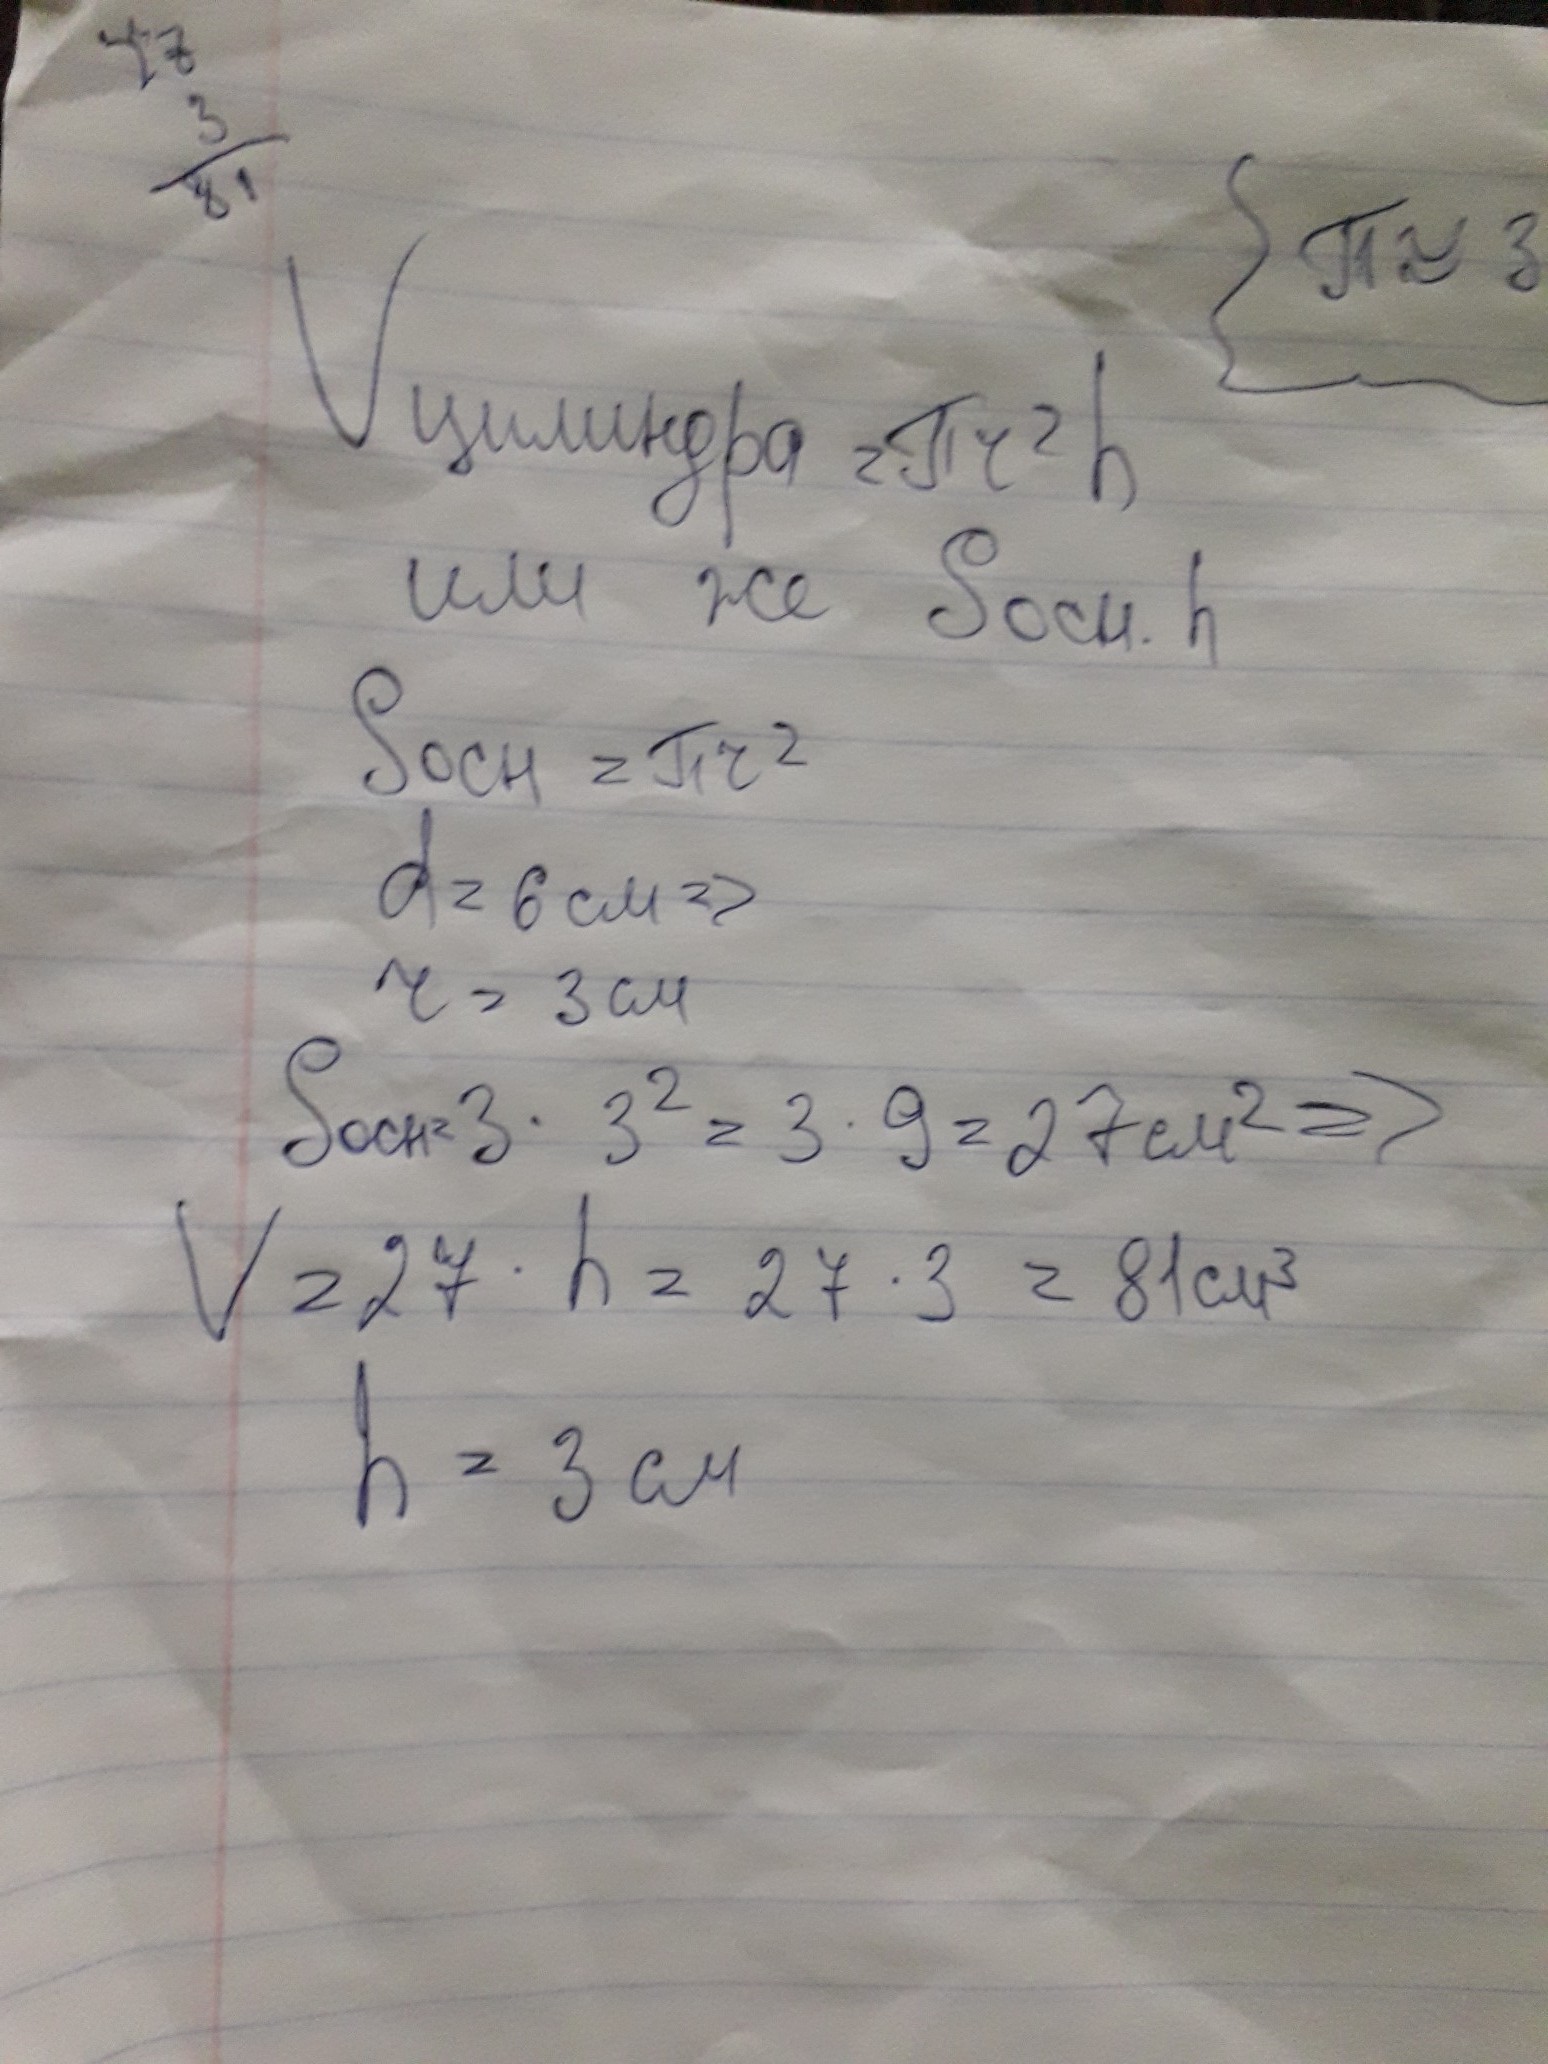 27
3
81
π ≈ 3
V цилиндра = πr²h
или же Sосн. h
Sосн = πr²
d = 6 см =>
r = 3 см
Sосн = 3 · 3² = 3 · 9 = 27 см² =>
V = 27 · h = 27 · 3 = 81 см³
h = 3 см